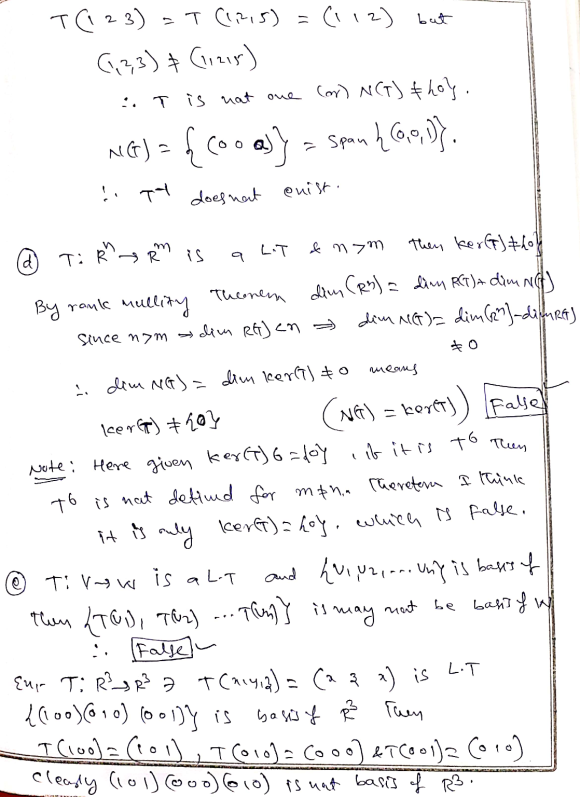 T(1 2 3) = T (1,2,5) = (1 1 2) but
(1,2,3) ≠ (1,2,5)
∴ T is not one (or) N(T) ≠ {0}.
N(T) = {(0 0 a)} = span {(0,0,1)}.
∴ T⁻¹ does not exist.
(d) T: Rⁿ → Rᵐ is a L.T & n>m then ker(T) ≠ {0}
By rank nullity Theorem dim (Rⁿ) = dim R(T) + dim N(T)
Since n>m → dim R(T) < n ⇒ dim N(T) = dim(Rⁿ) - dim R(T)
≠ 0
∴ dim N(T) = dim ker(T) ≠ 0 means
ker(T) ≠ {0} (N(T) = ker(T)) False
Note: Here given ker(T)6 = {0}, if it is T6 Then
T6 is not defined for m≠n. Therefore I think
it is only ker(T) = {0}. which is false.
(e) T: V→W is a L.T and {v1, v2, ... vn} is basis of
then {T(v1), T(v2) ... T(vn)} is may not be basis of W
∴ False
T: R³→R³ ∋ T(x,y,z) = (x z x) is L.T
{(100)(010)(001)} is basis of R³ Then
T(100) = (101), T(010) = (000) & T(001) = (010)
Clearly (101)(000)(010) is not basis of R3.